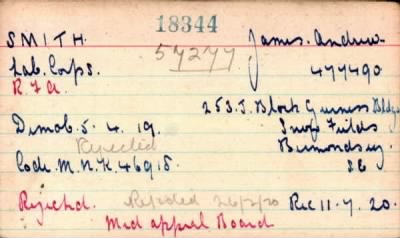 18344
SMITH. James. Andrew.
57277
Lab. Corps. 477490
R.F.A.
253. J. Block Guiness Bldgs
Demob. 5. 4. 19. Snow Fields
Rejected Bermondsey.
Code. M.N.K. 46918. SE
Rejected. Rejected 26/2/20 Rec 11.7.20.
Med appeal Board